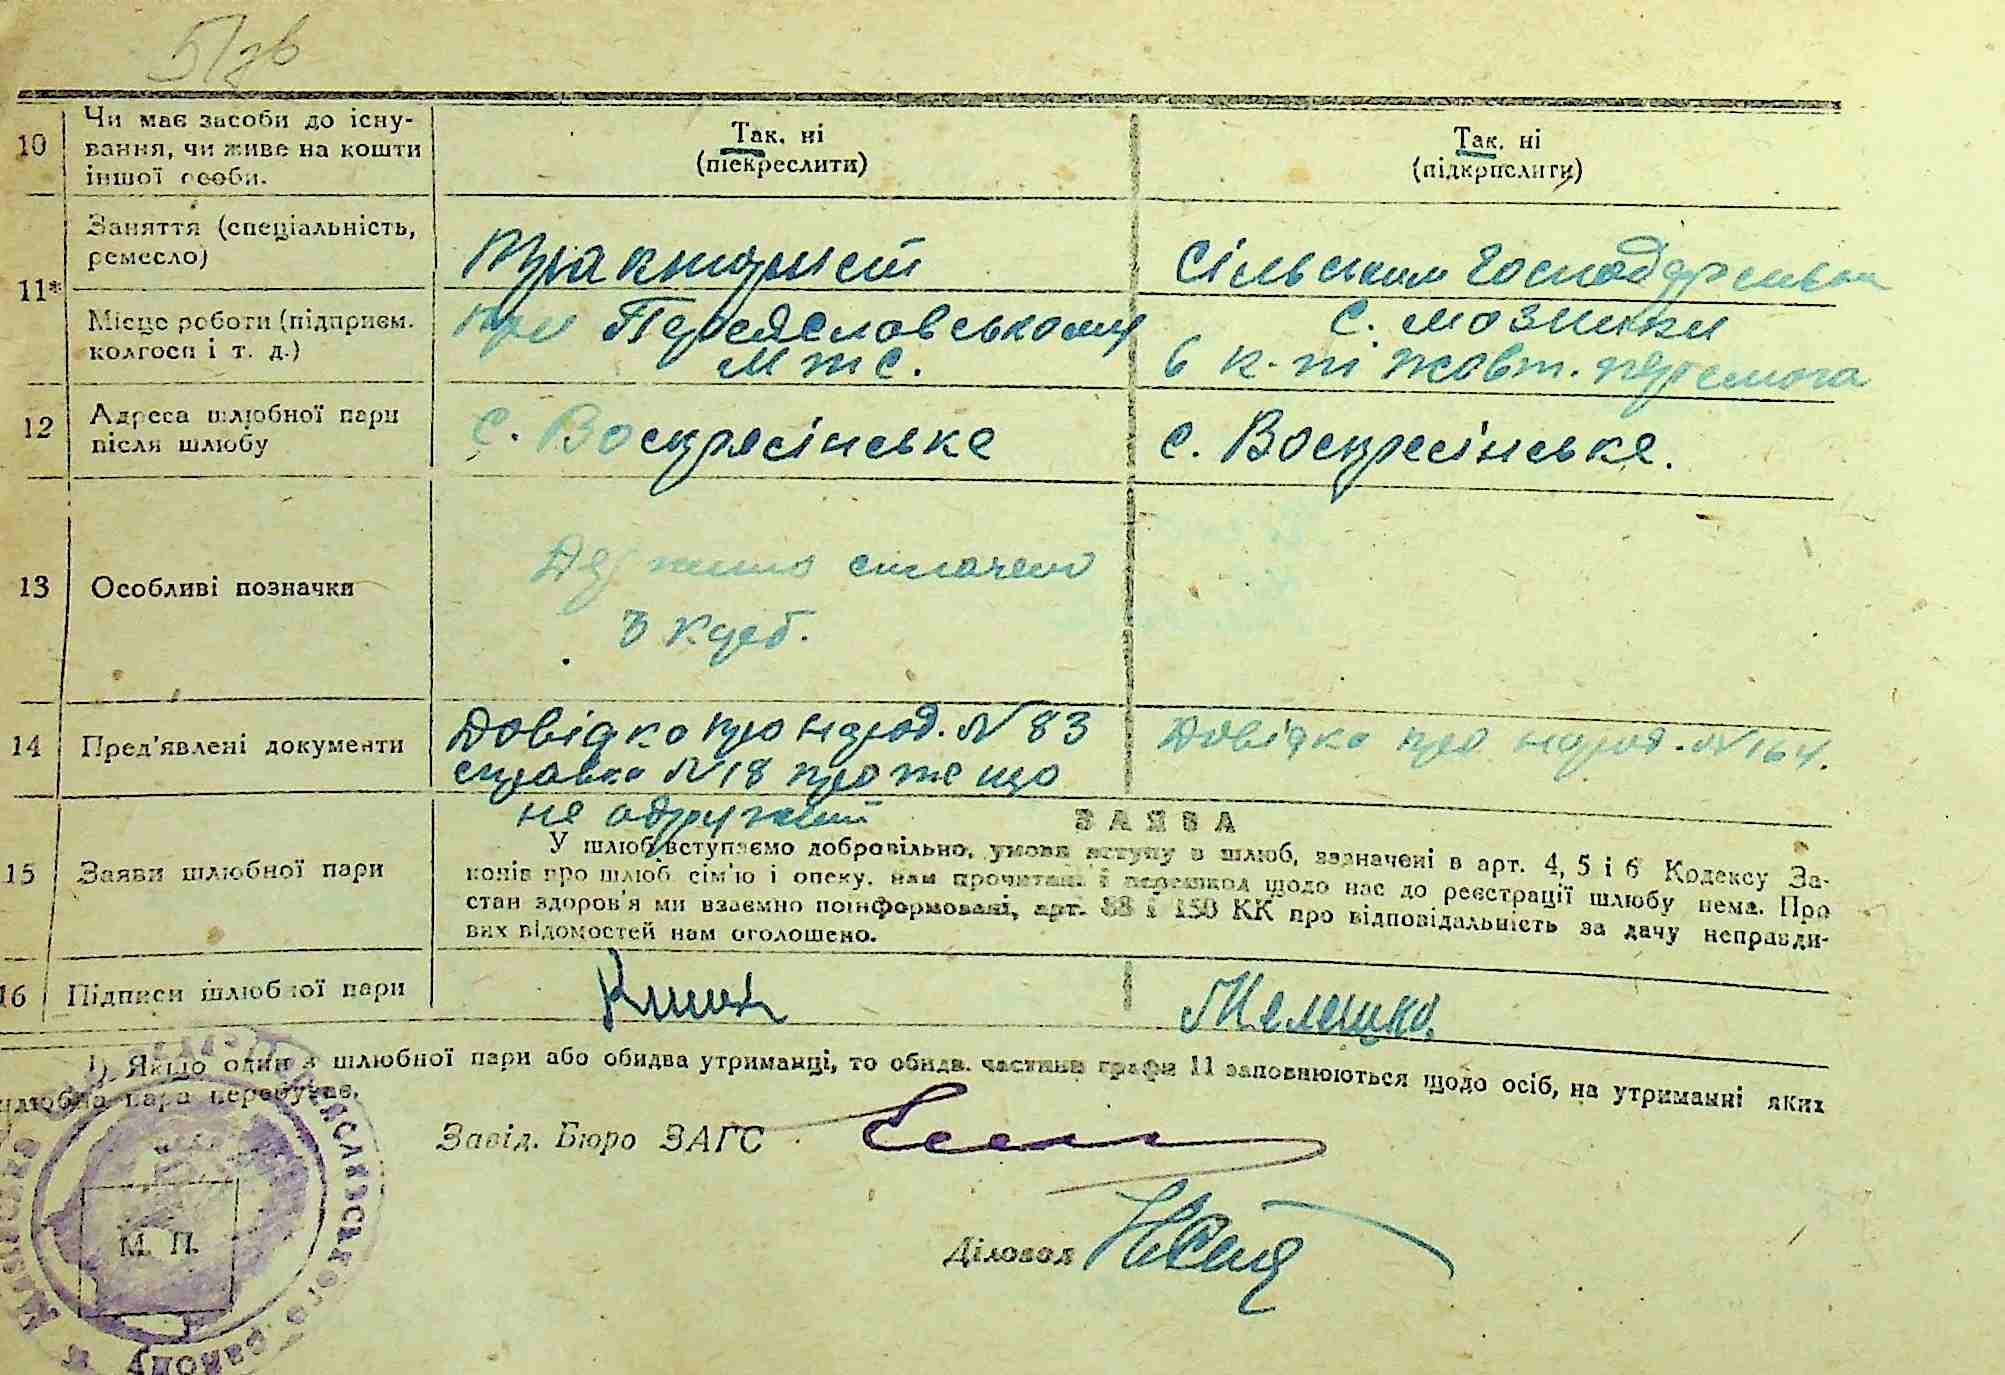 51зв
10 Чи має засоби до існу-
вання, чи живе на кошти
іншої особи.
Так, ні
(підкреслити)
Так, ні
(підкреслити)
11* Заняття (спеціальність,
ремесло)
Тракторист
Сільським господарством
Місце роботи (підприєм.
колгосп і т. д.)
при Переясловському
МТС.
с. Мозинки
в к-пі Жовт. перемога
12 Адреса шлюбної пари
після шлюбу
с. Воскресінське
с. Воскресінське.
13 Особливі позначки
14 Пред'явлені документи
Довідка про народ. N 83
справка N 18 про те що
не одружений
Довідка про народ. N 164.
15 Заяви шлюбної пари
ЗАЯВА
У шлюб вступаємо добровільно, умови вступу в шлюб, зазначені в арт. 4, 5 і 6 Кодексу За-
конів про шлюб, сім'ю і опеку, нам прочитані і перешкод щодо нас до реєстрації шлюбу нема. Про
стан здоров'я ми взаємно поінформовані, арт. 88 і 150 КК про відповідальність за дачу неправди-
вих відомостей нам оголошено.
16 Підписи шлюбної пари
Мелешко
1) Якщо один з шлюбної пари або обидва утриманці, то обидв. частини графи 11 заповнюються щодо осіб, на утриманні яких
шлюбна пара перебуває.
Завід. Бюро ЗАГС
М. П.
Діловод